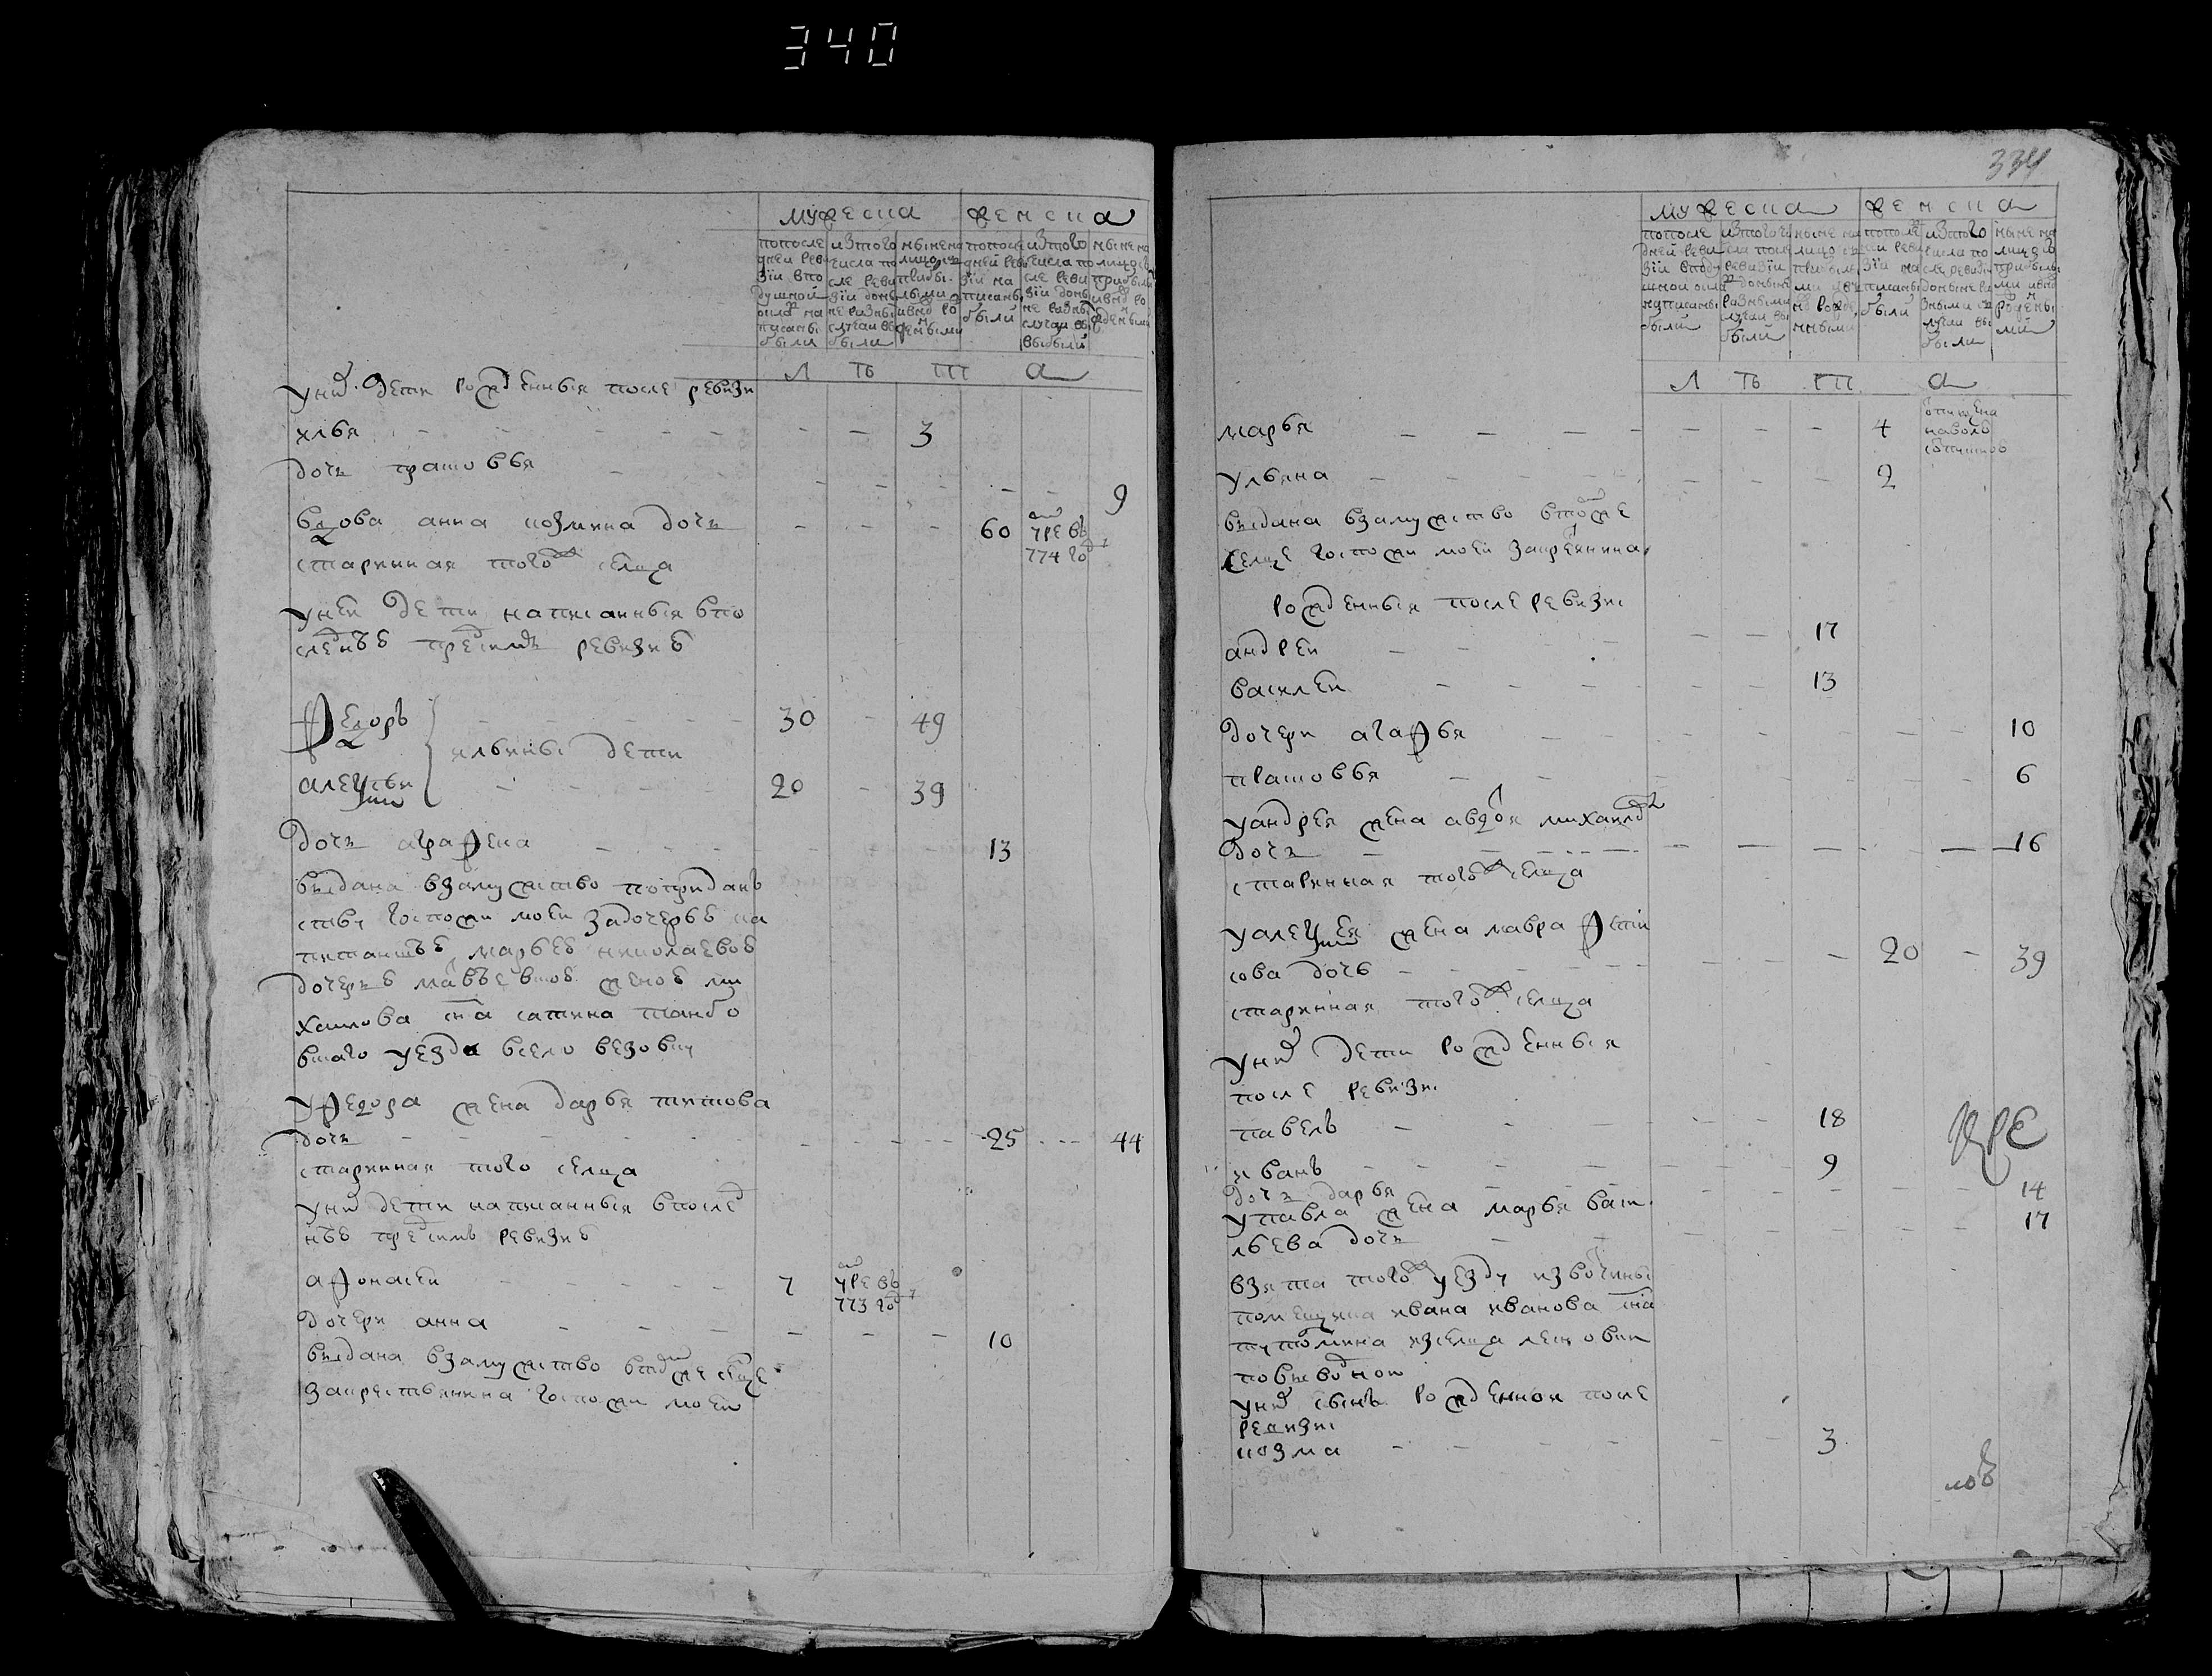 340
мужеска женска
попосле дней ревизии вподушной окладъ написаны были
изтого числа после ревизии доныне разными случаи выбыли
ныне налицо съ прибылыми и вновь рожденными
попоследней ревизии написаны были
изтого числа после ревизии доныне разными случаи выбыли
ныне налицо съ прибылыми и вновь рожденными
л ѣ т а
унихъ дети рожденныя после ревизи
илья 3
дочь прасковья 9
вдова анна козмина дочь 60 умре въ
старинная тогожъ селца 774 году
уней дети написанныя впо
следнѣй предсимъ ревизиѣ
Федоръ 30 49
ильины дети
алексѣй 20 39
дочь аграфена 13
выдана взамужство поприданъ
ству госпожи моей задочерью ка
питаншѣю марьею николаевою
дочерью матвѣевскою женою ми
хаилова сна сатина танбо
вскаго уезда всело
уфедора жена дарья титова
дочь 25 44
старинная того селца
унихъ дети написанныя впослед
нѣй предсимъ ревизиѣ
афонасей 7 умре въ
773 году
дочери анна 10
выдана взамужство втомже селце
закрестьянина госпожи моей
334
мужеска женска
попоследней ревизии вподушной окладъ написаны были
изтого числа после ревизии доныне разными случаи выбыли
ныне налицо съ прибылыми и вновь рожденными
попоследней ревизии написаны были
изтого числа после ревизии доныне разными случаи выбыли
ныне налицо съ прибылыми и вновь рожденными
л ѣ т а
марья 4 отпущена
наволю
ульяна 2
выдана взамужство втомже
селце госпожи моей закрестьянина
рожденныя после ревизи
андрей 17
василей 13
дочери агафья 10
прасковья 6
уандрея жена авдотья михаилова
дочь 16
старинная тогожъ селца
уалексѣя жена мавра Фети
сова дочь 20 39
старинная тогожъ селца
унихъ дети рожденныя
после ревизи
павелъ 18
иванъ 9
дочь дарья 14
упавла жена марья васи 17
льева дочь
взята тогожъ уезду извотчины
помещика ивана иванова сна
тутолмина изселца
повыводной
унихъ сынъ рожденной после
ревизи
козма 3